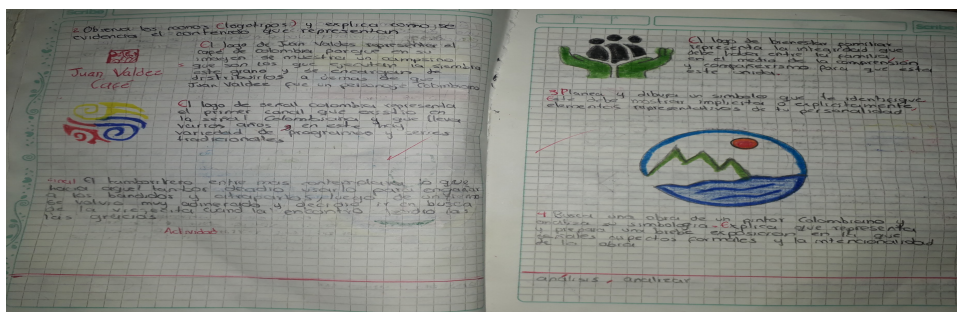 2. Observa los iconos (logotipos) y explica como se
evidencia el contenido que representan
El logo de Juan Valdes representa el
cafe de colombia porque en su
imagen se muestra un campesino
Juan Valdez
Café
que son los que ejecutan la siembra
este grano y se encargan de
distribuirlos a demas que
Juan Valdez fue un personaje Colombiano
El logo de señal colombia representa
el primer canal que existio en
la señal Colombiana y que lleva
varios años, en este hay
variedad de programas y series
tradicionales
Final El tamborilero entre mas contemplaba lo que
hacia aquel tambor decidio usarlo para engañar
a los bandidos y atraparlos, luego de un tiempo
se volvio muy adinerado y decidio ir en busca
de la viejecita cuando la encontro le dio las
las gracias
Actividad
El logo de bienestar familiar
representa la integridad que
debe haber entre la familia,
en el medio de la comprensión
y compañerismo para que esta
este unida.
3. Planea y dibuja un simbolo que te identifique
este debe mostrar implicita o explicitamente
elementos representativos de tu personalidad
4. Busca una obra de un pintor Colombiano y
analiza su simbologia. Explica que representa
y prepara una breve exposicion en la que
señales aspectos formales y la intencionalidad
de la obra
analisis, analizar